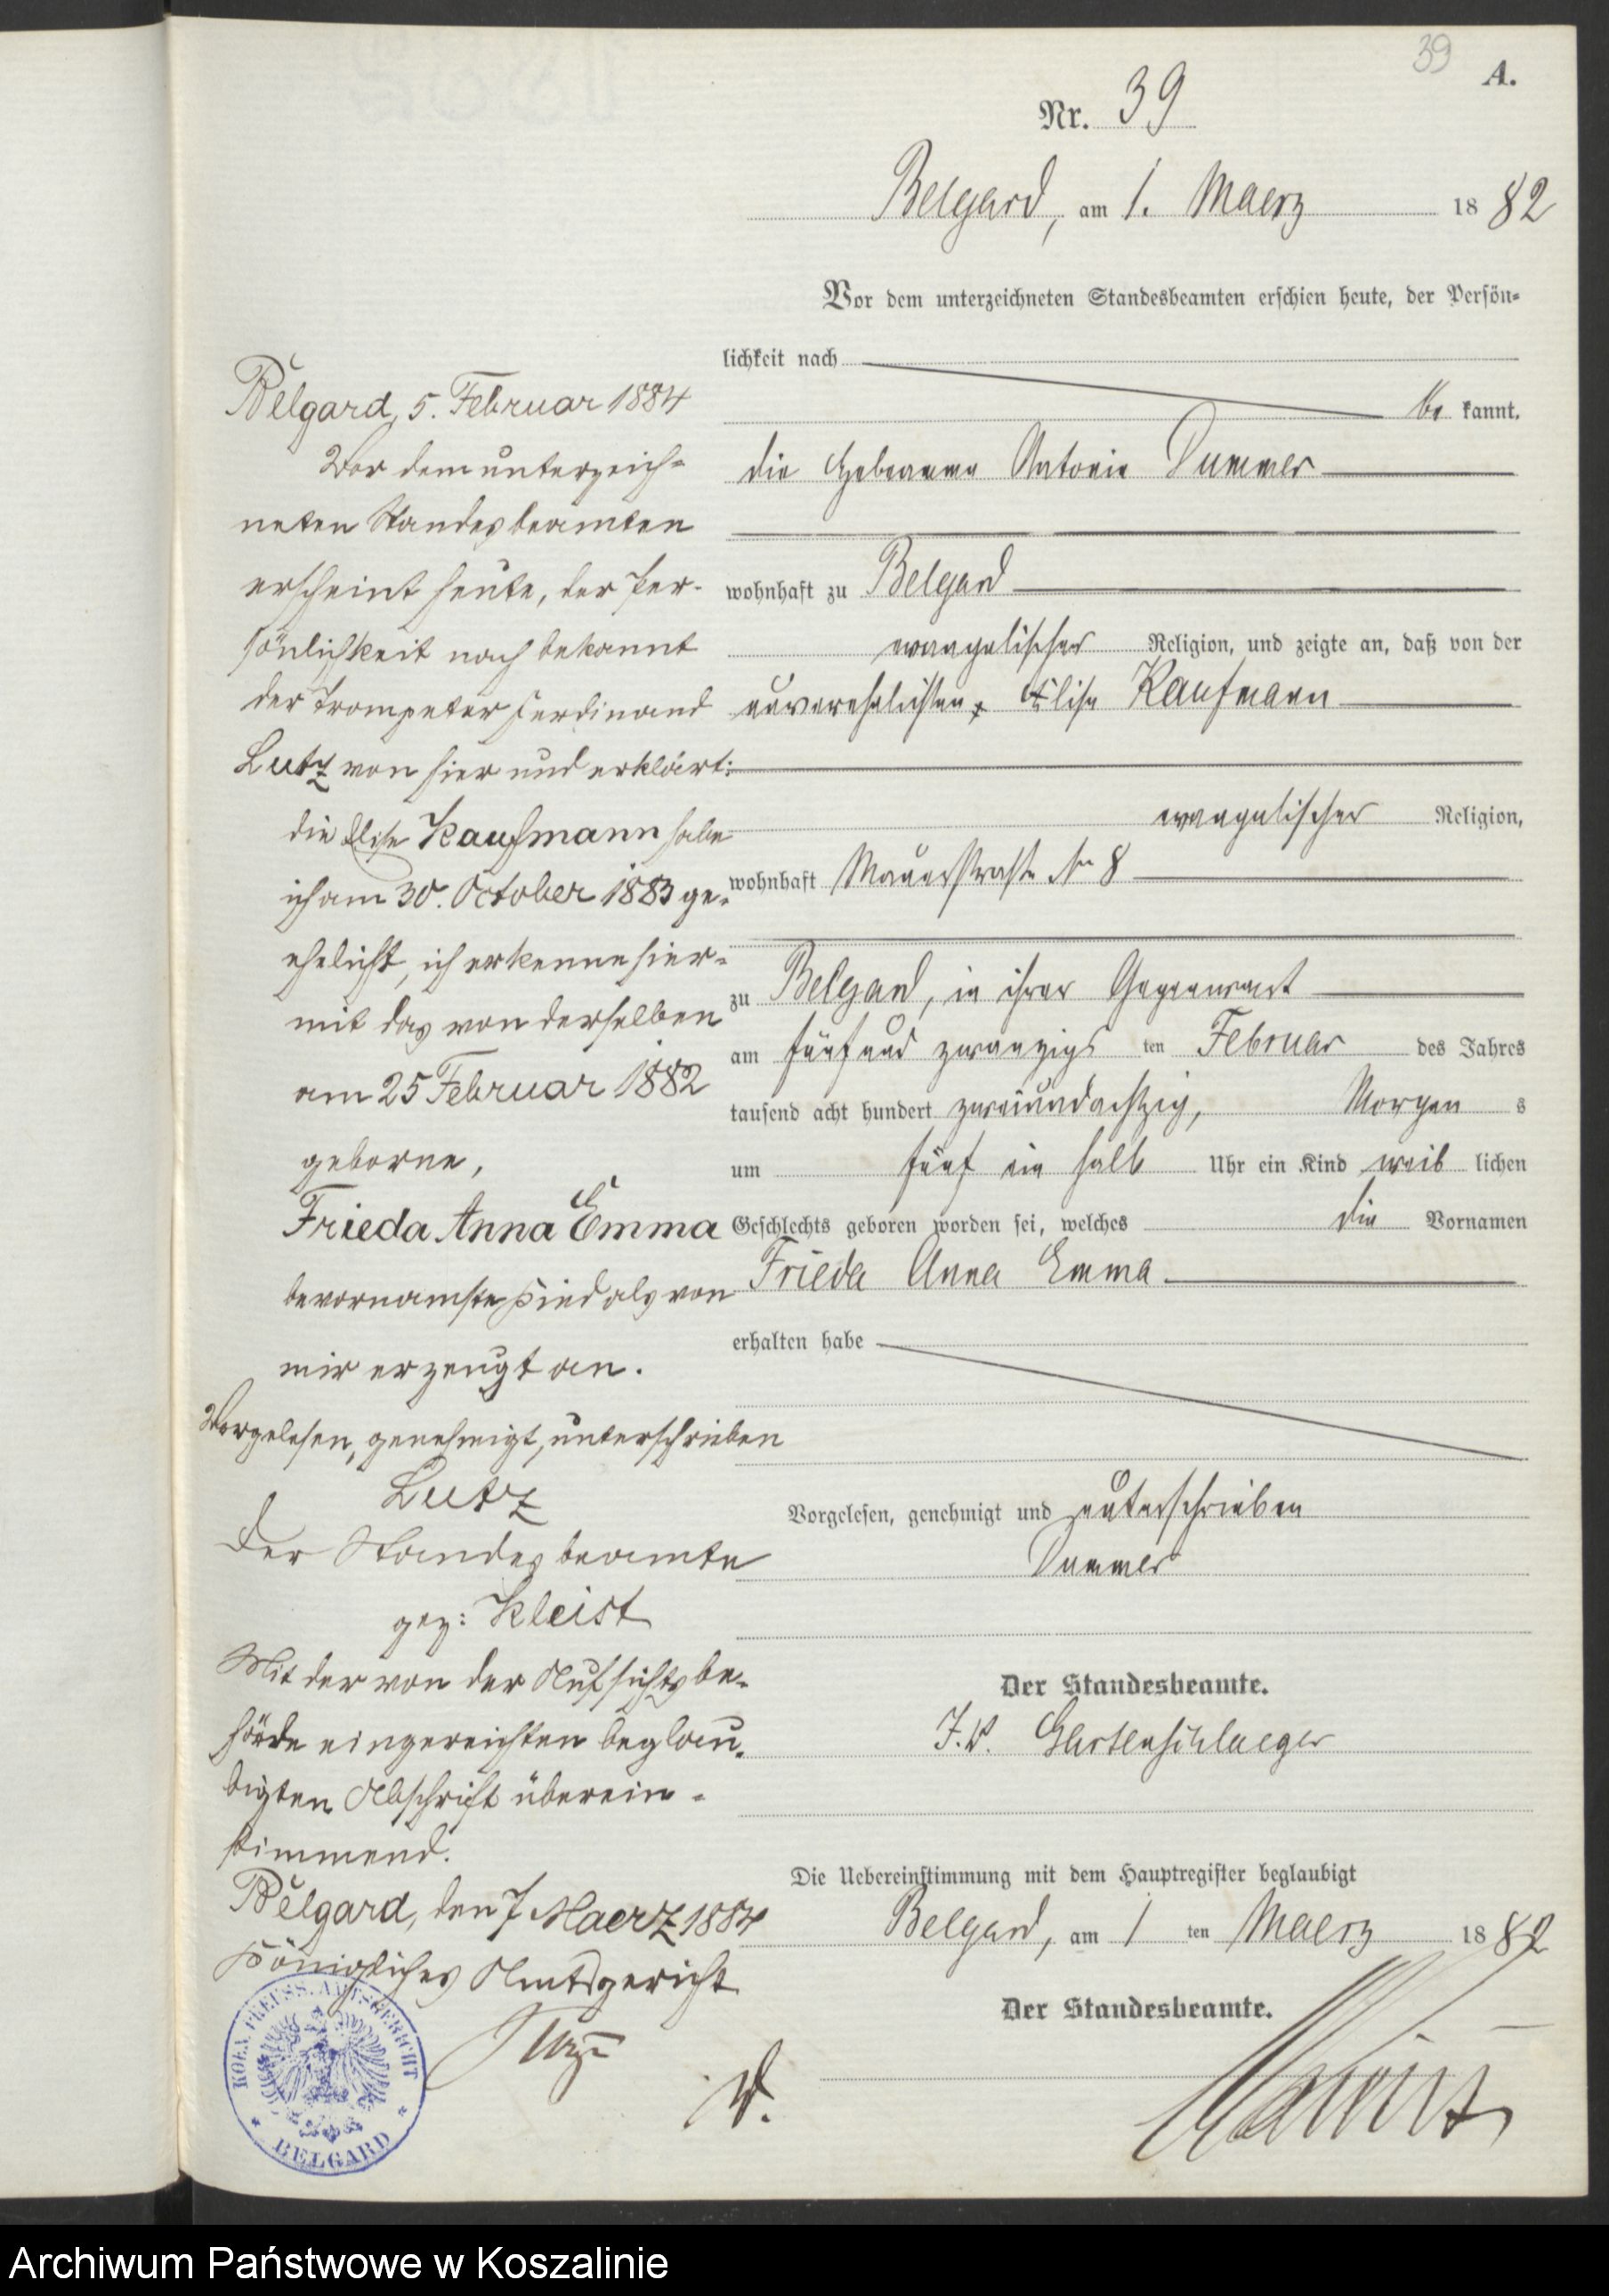 39
A.
Nr. 39
Belgard, am 1. Maerz 1882
Vor dem unterzeichneten Standesbeamten erschien heute, der Persön-
lichkeit nach
be kannt,
die Hebeamme Antonie Dummer
wohnhaft zu Belgard
evangelischer Religion, und zeigte an, daß von der
unverehelichten Elise Kaufmann
evangelischer Religion,
wohnhaft Mauerstraße No 8
zu Belgard, in ihrer Gegenwart
am fünfund zwanzigs ten Februar des Jahres
tausend acht hundert zweiundachtzig, Morgen s
um fünf ein halb Uhr ein Kind weib lichen
Geschlechts geboren worden sei, welches die Vornamen
Frieda Anna Emma
erhalten habe
Vorgelesen, genehmigt und unterschrieben
Dummer
Der Standesbeamte.
J. V. Gartenschlaeger
Die Uebereinstimmung mit dem Hauptregister beglaubigt
Belgard, am 1 ten Maerz 1882
Der Standesbeamte.
Belgard, 5. Februar 1884
Vor dem unterzeich=
neten Standesbeamten
erscheint heute, der Per-
sönlichkeit nach bekannt
der Trompeter Ferdinand
Lutz von hier und erklärt:
die Elise Kaufmann habe
ich am 30. October 1883 ge-
ehelicht, ich erkenne hier-
mit das von derselben
am 25 Februar 1882
geborne,
Frieda Anna Emma
bevornamte Kind als von
mir erzeugt an.
Vorgelesen, genehmigt, unterschrieben
Lutz
Der Standesbeamte
gez: Kleist
Mit der von der Aufsichtsbe-
hörde eingereichten beglau-
bigten Abschrift überein-
stimmend.
Belgard, den 7 Maerz 1884
Königliches Amtsgericht
KOEN. PREUSS. AMTSGERICHT
* BELGARD *
Archiwum Państwowe w Koszalinie